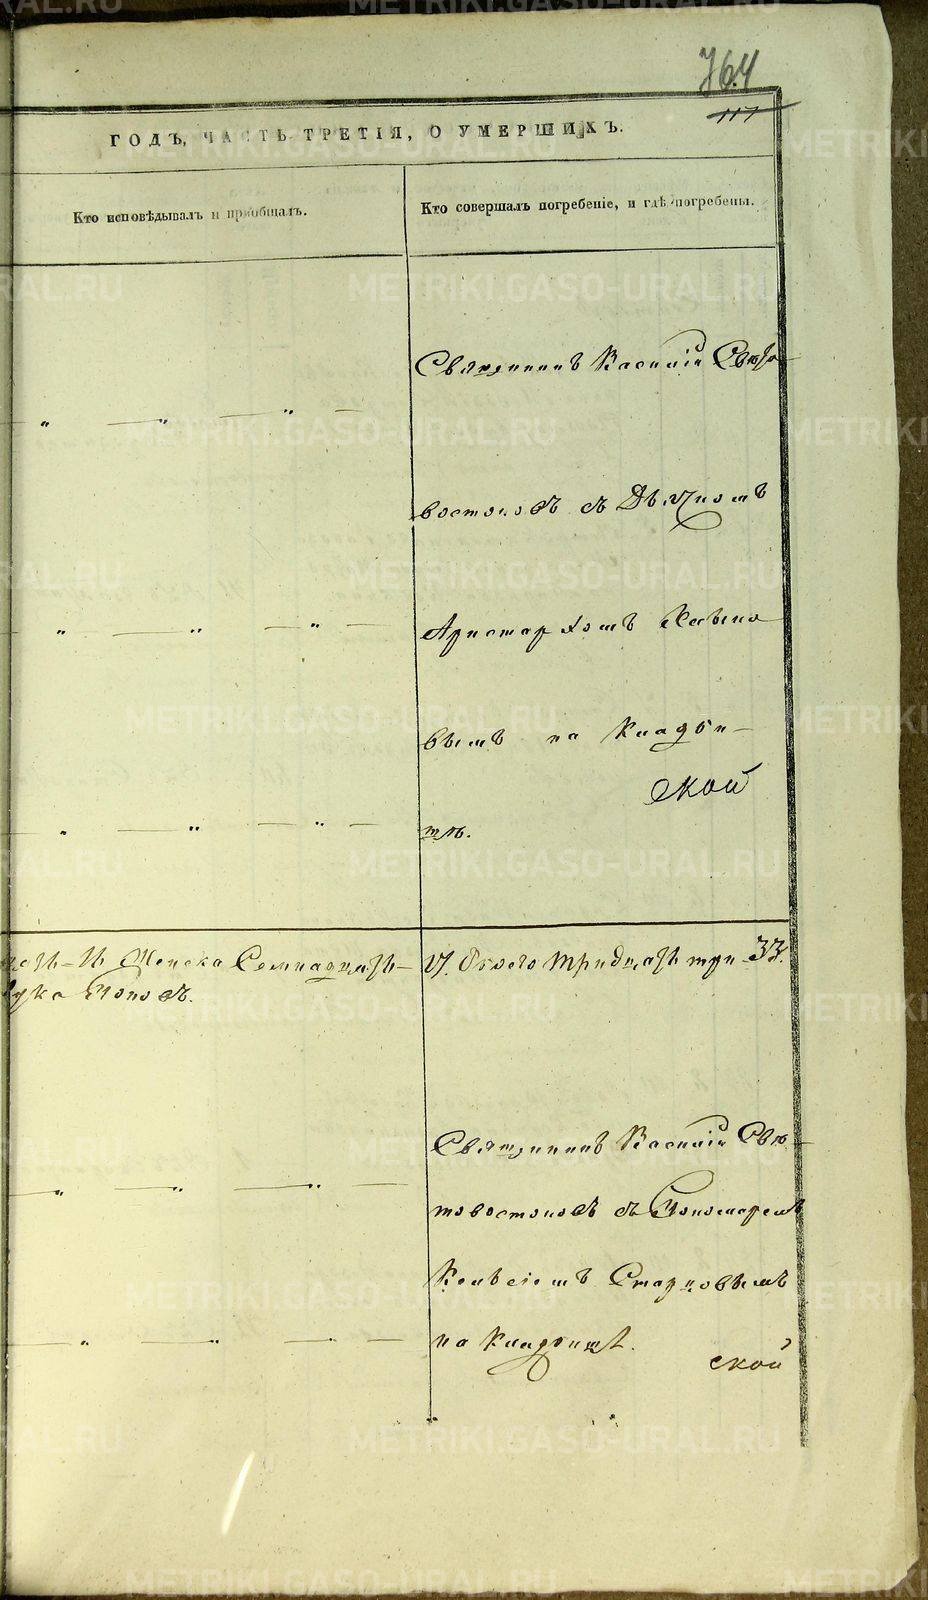 764
117
ГОДЪ, ЧАСТЬ ТРЕТІЯ, О УМЕРШИХЪ.
Кто исповѣдывалъ и пріобщалъ.
Кто совершалъ погребеніе, и гдѣ погребены.
Священникъ Василій Свѣто-
востоковъ съ Дьячкомъ
Аристархомъ
вымъ на кладби-
ской
щѣ.
Женска Семнадцать-
17. Обоего тридцать три 33.
Поповъ.
Священникъ Василій Свѣ-
товостоковъ съ Пономаремъ
Старцовымъ
на кладбищѣ.
ской
METRIKI.GASO-URAL.RU